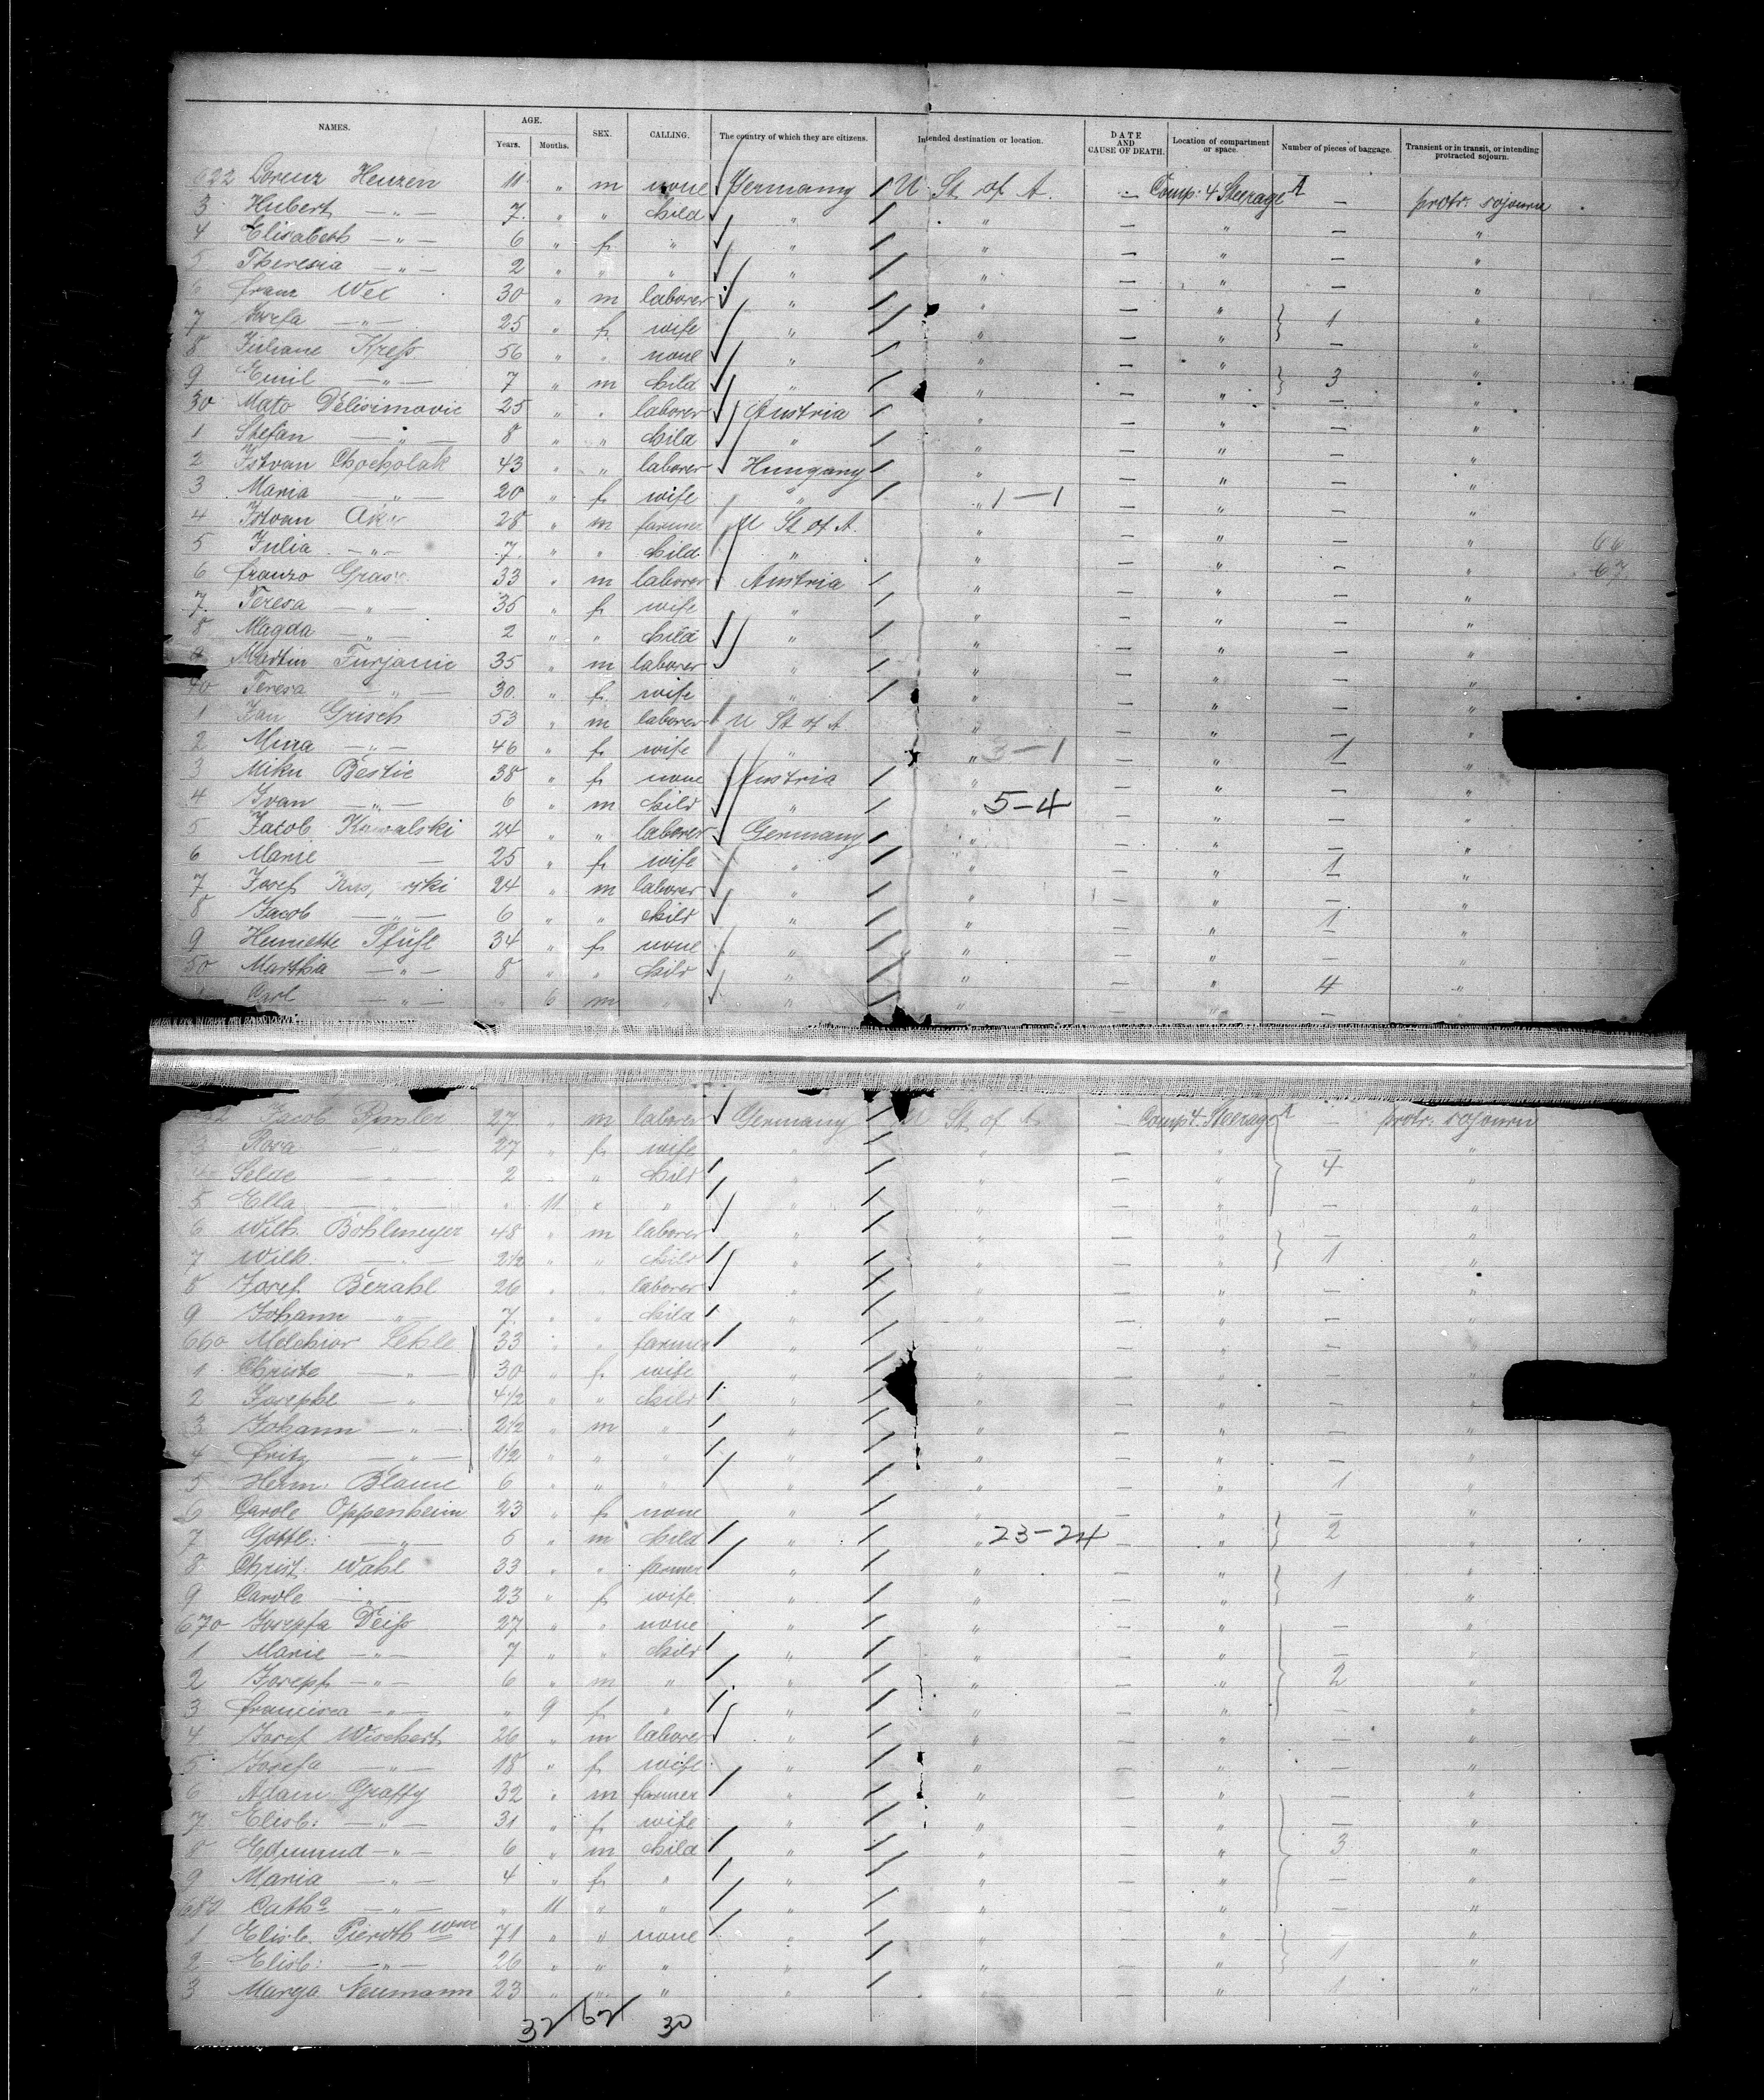 NAMES. AGE. Years. Months. SEX. CALLING. The country of which they are citizens. Intended destination or location. DATE AND CAUSE OF DEATH. Location of compartment or space. Number of pieces of baggage. Transient or in transit, or intending protracted sojourn.
622 Lorenz Heuzen 11 " m none Germany U St of A. — Comp: 4 Steerage A — protr: sojourn
3 Hubert —"— 7 " " child " " — " — "
4 Elisabeth —"— 6 " f " " " — " — "
5 Theresia —"— 2 " " " " " — " — "
6 Franz Wex 30 " m laborer " " — "
7 Josefa —"— 25 " f wife " " — " 1 "
8 Juliane Kreß 56 " " none " " — " — "
9 Emil —"— 7 " m child " " — " 3 "
30 Mato Delisimovic 25 " " laborer Austria " — " — "
1 Stefan —"— 8 " " child " " — " — "
2 Istvan Chocholak 43 " " laborer Hungary " — " — "
3 Maria —"— 20 " f wife " " 1—1 — " — "
4 Istvan 28 " m farmer U St of A. " — " — "
5 Julia —"— 7 " " child " " — " — " 66
6 Franzo 33 " m laborer Austria " — " — " 67
7 Teresa —"— 35 " f wife " " — " — "
8 Magda —"— 2 " " child " " — " — "
9 Martin Furjanic 35 " m laborer " " — " — "
40 Teresa —"— 30 " f wife " " — " — "
1 Jan Grisch 53 " m laborer U St of A " — " — "
2 Mura —"— 46 " f wife " " 3—1 — " 1 "
3 Miku Bestic 38 " f none Austria " — " — "
4 Ivan —"— 6 " m child " " 5—4 — " — "
5 Jacob Kowalski 24 " " laborer Germany " — " — "
6 Marie — 25 " f wife " " — " 1 "
7 Josef 24 " m laborer " " — " — "
8 Jacob —"— 6 " " child " " — " 1 "
9 Henriette Pfüfl 34 " f none " " — " — "
50 Martha —"— 8 " " child " " — " 4 "
Carl —"— " 6 m " " " — " — "
2 Jacob 27 " m laborer Germany U St. of A. — Comp 4. Steerage A — protr: sojourn
3 Rosa —"— 27 " f wife " " — " — "
4 Selde —"— 2 " " child " " — " 4 "
5 Ella —"— " 11 " " " " — " — "
6 Wilh. Bohlmeyer 48 " m laborer " " — " — "
7 Wilh. —"— 2 1/2 " " child " " — " 1 "
8 Josef Bezahl 26 " " laborer " " — " — "
9 Johann —"— 7 " " child " " — " — "
660 Melchior Lekle 33 " " farmer " " — " — "
1 Christe —"— 30 " f wife " " — " — "
2 Josephe —"— 4 1/2 " " child " " — " — "
3 Johann —"— 2 1/2 " m " " " — " — "
4 Fritz —"— 1 1/2 " " " " " — " — "
5 Herm. Blaine 6 " " " " " — " 1 "
6 Carole Oppenheim 23 " f none " " — " — "
7 Gottl: —"— 5 " m child " " 23—24 — " 2 "
8 Christ. Wahl 33 " " farmer " " — " "
9 Carole —"— 23 " f wife " " — " 1 "
670 Josepfa Deiß 27 " " none " " — " — "
1 Marie —"— 7 " " child " " — " — "
2 Josepf —"— 6 " m " " " — " 2 "
3 Francisca —"— " 9 f " " " — " — "
4 Josef Wischert 26 " m laborer " " — " — "
5 Josefa —"— 18 " f wife " " — " — "
6 Adam Graffy 32 " m farmer " " — " — "
7 Elisb: —"— 31 " f wife " " — " — "
8 Edmund —"— 6 " m child " " — " 3 "
9 Maria —"— 4 " f " " " — " — "
680 Catha —"— " 11 " " " " — " — "
1 Elisb. Pieroth wwe 71 " " none " " — " — "
2 Elisb: —"— 26 " " " " " — " 1 "
3 Marga Neumann 23 " " " " " — " 1 "
32 62 30